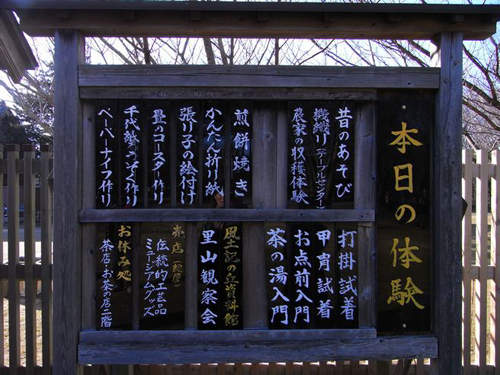 本日の体験
昔のあそび
機織り
農家の収穫体験
煎餅焼き
かんたん折り紙
張り子の絵付け
畳のコースター作り
千代紙ろうそく作り
ペーパーナイフ作り
打掛試着
甲冑試着
お点前入門
茶の湯入門
風土記の丘資料館
里山観茶会
売店(一階)
伝統的工芸品
ミュージアムグッズ
お休み処
茶店・お茶の店二階